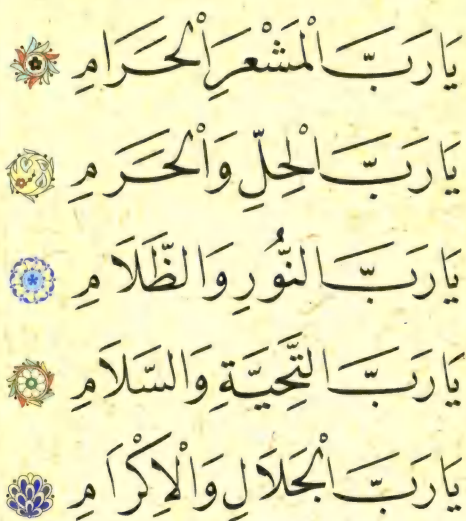 يَارَبَّ الْمَشْعَرِ الْحَرَامِ
يَارَبَّ الْحِلِّ وَالْحَرَمِ
يَارَبَّ النُّورِ وَالظَّلَامِ
يَارَبَّ التَّحِيَّةِ وَالسَّلَامِ
يَارَبَّ الْجَلَالِ وَالْاِكْرَامِ